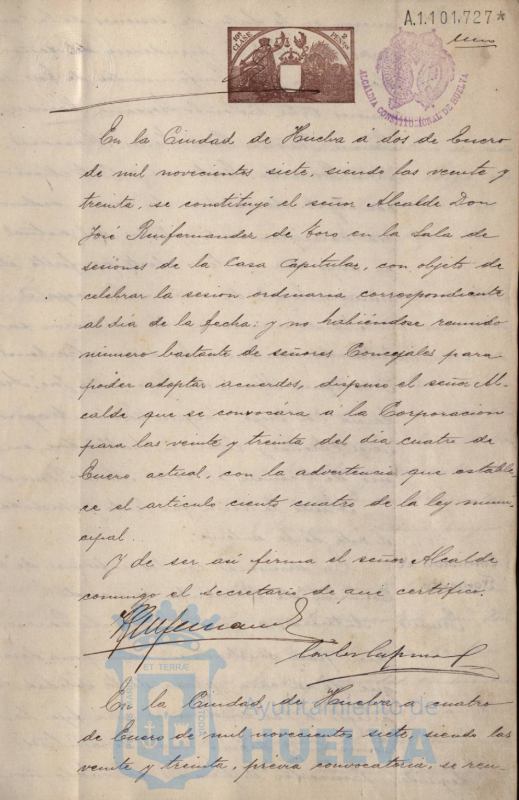 A.1.101.727*
10ª CLASE
2 PESETAS
ALCALDIA CONSTITUCIONAL DE HUELVA
En la Ciudad de Huelva á dos de Enero
de mil novecientos siete, siendo las veinte y
treinta, se constituyó el señor Alcalde Don
José Ruifernandez de Toro en la Sala de
sesiones de la Casa Capitular, con objeto de
celebrar la sesion ordinaria correspondiente
al dia de la fecha: y no habiendose reunido
número bastante de señores Concejales para
poder adoptar acuerdos, dispuso el señor Al-
calde que se convocára a la Corporacion
para las veinte y treinta del dia cuatro de
Enero actual, con la advertencia que estable-
ce el articulo ciento cuatro de la ley muni-
cipal.
Y de ser asi firma el señor Alcalde
conmigo el secretario de que certifico.
En la Ciudad de Huelva a cuatro
de Enero de mil novecientos siete, siendo las
veinte y treinta, previa convocatoria, se reu-
ET TERRÆ
Ayuntamiento de
HUELVA